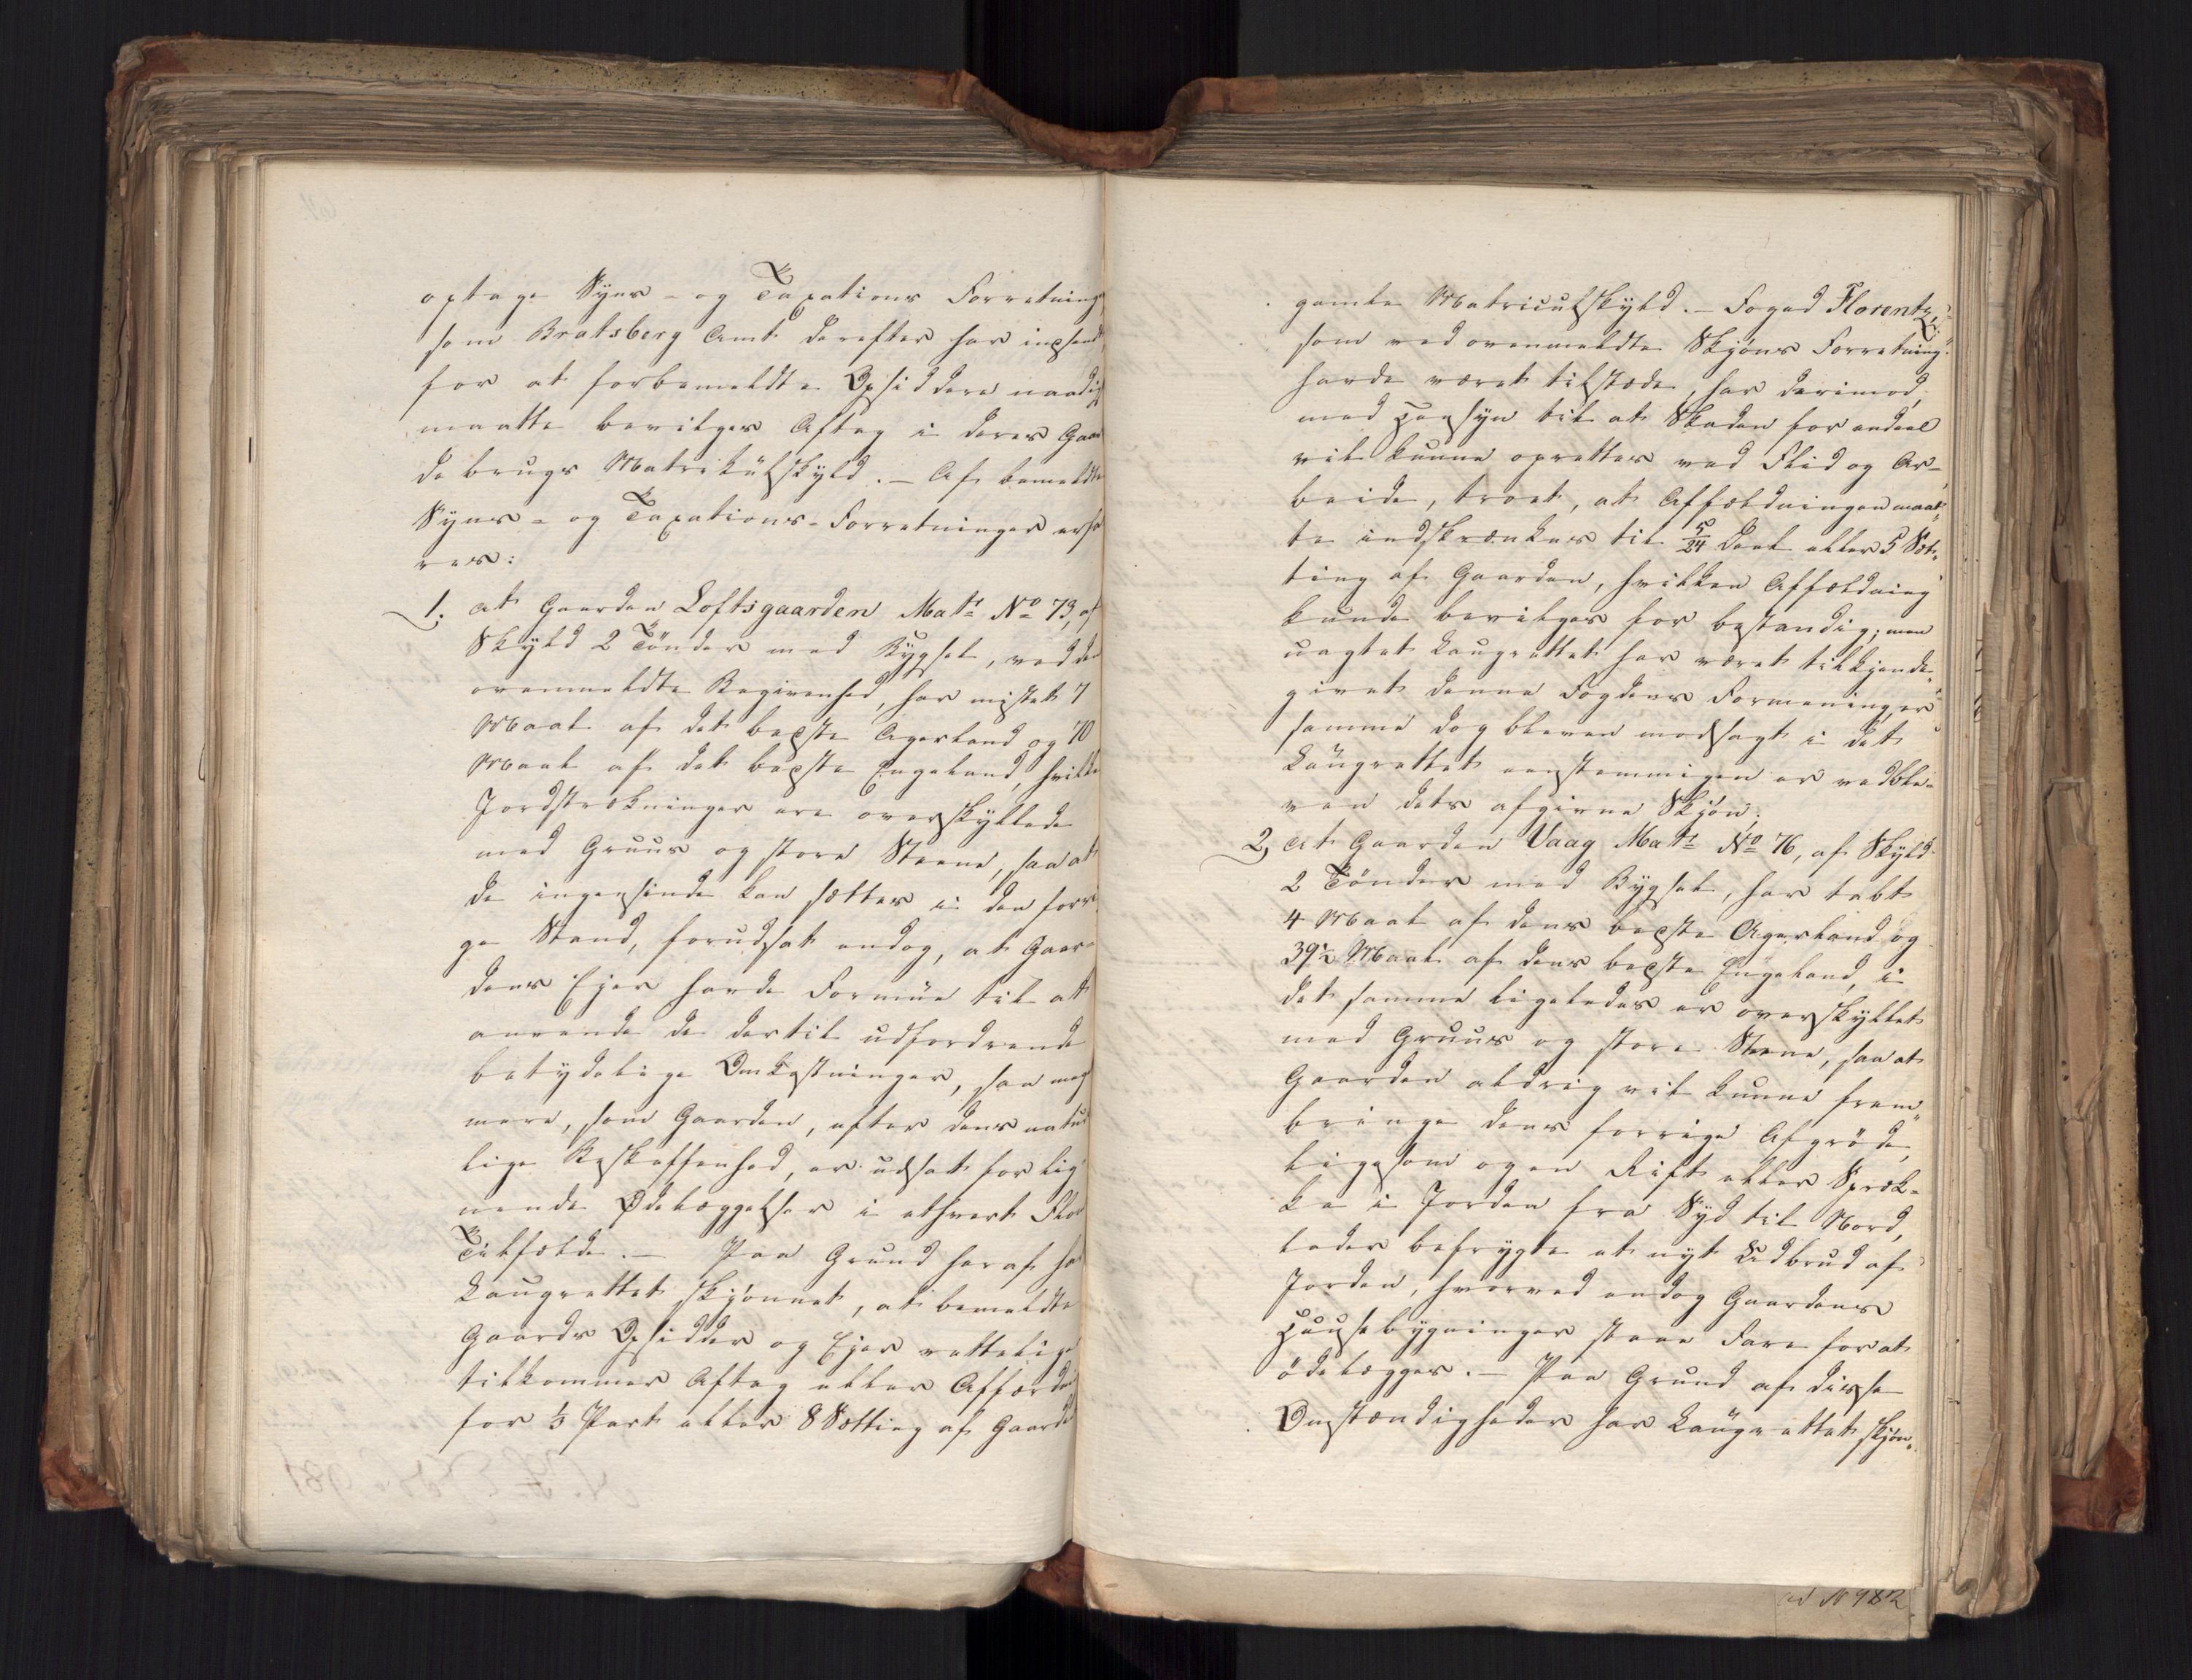 optage Syns- og Taxations Forretning
som Bratsberg Amt derefter har indsendt
for at forbemeldte Opsiddere naadigst
maatte bevilges Aftag i deres Gaar
de brugs Matrikülskyld. — Af bemeldte
Syns- og Taxations-Forretninger erfa
res:
1. at Gaarden Loftsgaarden Matr. No 73, af
Skyld 2 Tönder med Bygsel, ved den
ovenmeldte Begivenhed, har mistet 7
Maal af det beste Agerland og 70
Maal af det beste Engeland, hvilke
Jordstrækninger ere overskyllede
med Gruus og store Steene, saa at
de ingensinde kan sættes i den forri
ge Stand, forudsat endog, at Gaar-
dens Ejer havde Formüe til at
anvende de dertil udfordrende
betydelige Omkostninger, saa meget
mere, som Gaarden, efter dens natur
lige Beskaffenhed, er udsat for lig
nende Ødelæggelser i ethvert Flom
Tilfælde. — Paa Grund heraf har
Laugrettet skjønnet, at bemeldte
Gaards Opsidder og Ejer rettelig
tilkommer Aftag eller Affæld
for 1/3 Part eller 8 Sætting af Gaardens
gamle Matriculskyld. — Foged Florentz,
som ved ovenmeldte Skjøns Forretning
havde været tilstæde, har derimod,
med Hensyn til at Skaden for endeel
vil kunne oprettes ved Flid og Ar-
beide, troet, at Affældningen maat-
te indskrænkes til 5/24 Deel eller 5 Sæt-
ting af Gaarden, hvilken Affældning
kunde bevilges for bestandig; men
uagtet Laugrettet har været tilkjende-
givet denne Fogdens Formening, er
samme dog bleven modsagt i det
Laügrettet eenstemmigen er vedble-
ven dets afgivne Skjön.
2, at Gaarden Vaag Matr. No 76, af Skyld
2 Tönder med Bygsel, har tabt
4 Maal af dens beste Agerland og
39 1/2 Maal af dens beste Engeland, i
det samme ligeledes er overskyllet
med Gruus og store Steene, saa at
Gaarden aldrig vil kunne frem-
bringe dens forrige Afgröde,
ligesom og en Rift eller Spræk-
ke i Jorden fra Syd til Nord,
lader befrygte et nyt Udbrud af
Jorden, hvorved endog Gaardens
Huusebygninger staae Fare for at
ödelægges. — Paa Grund af disse
Omstændigheder har Laügrettet skjøn-
ad N 982